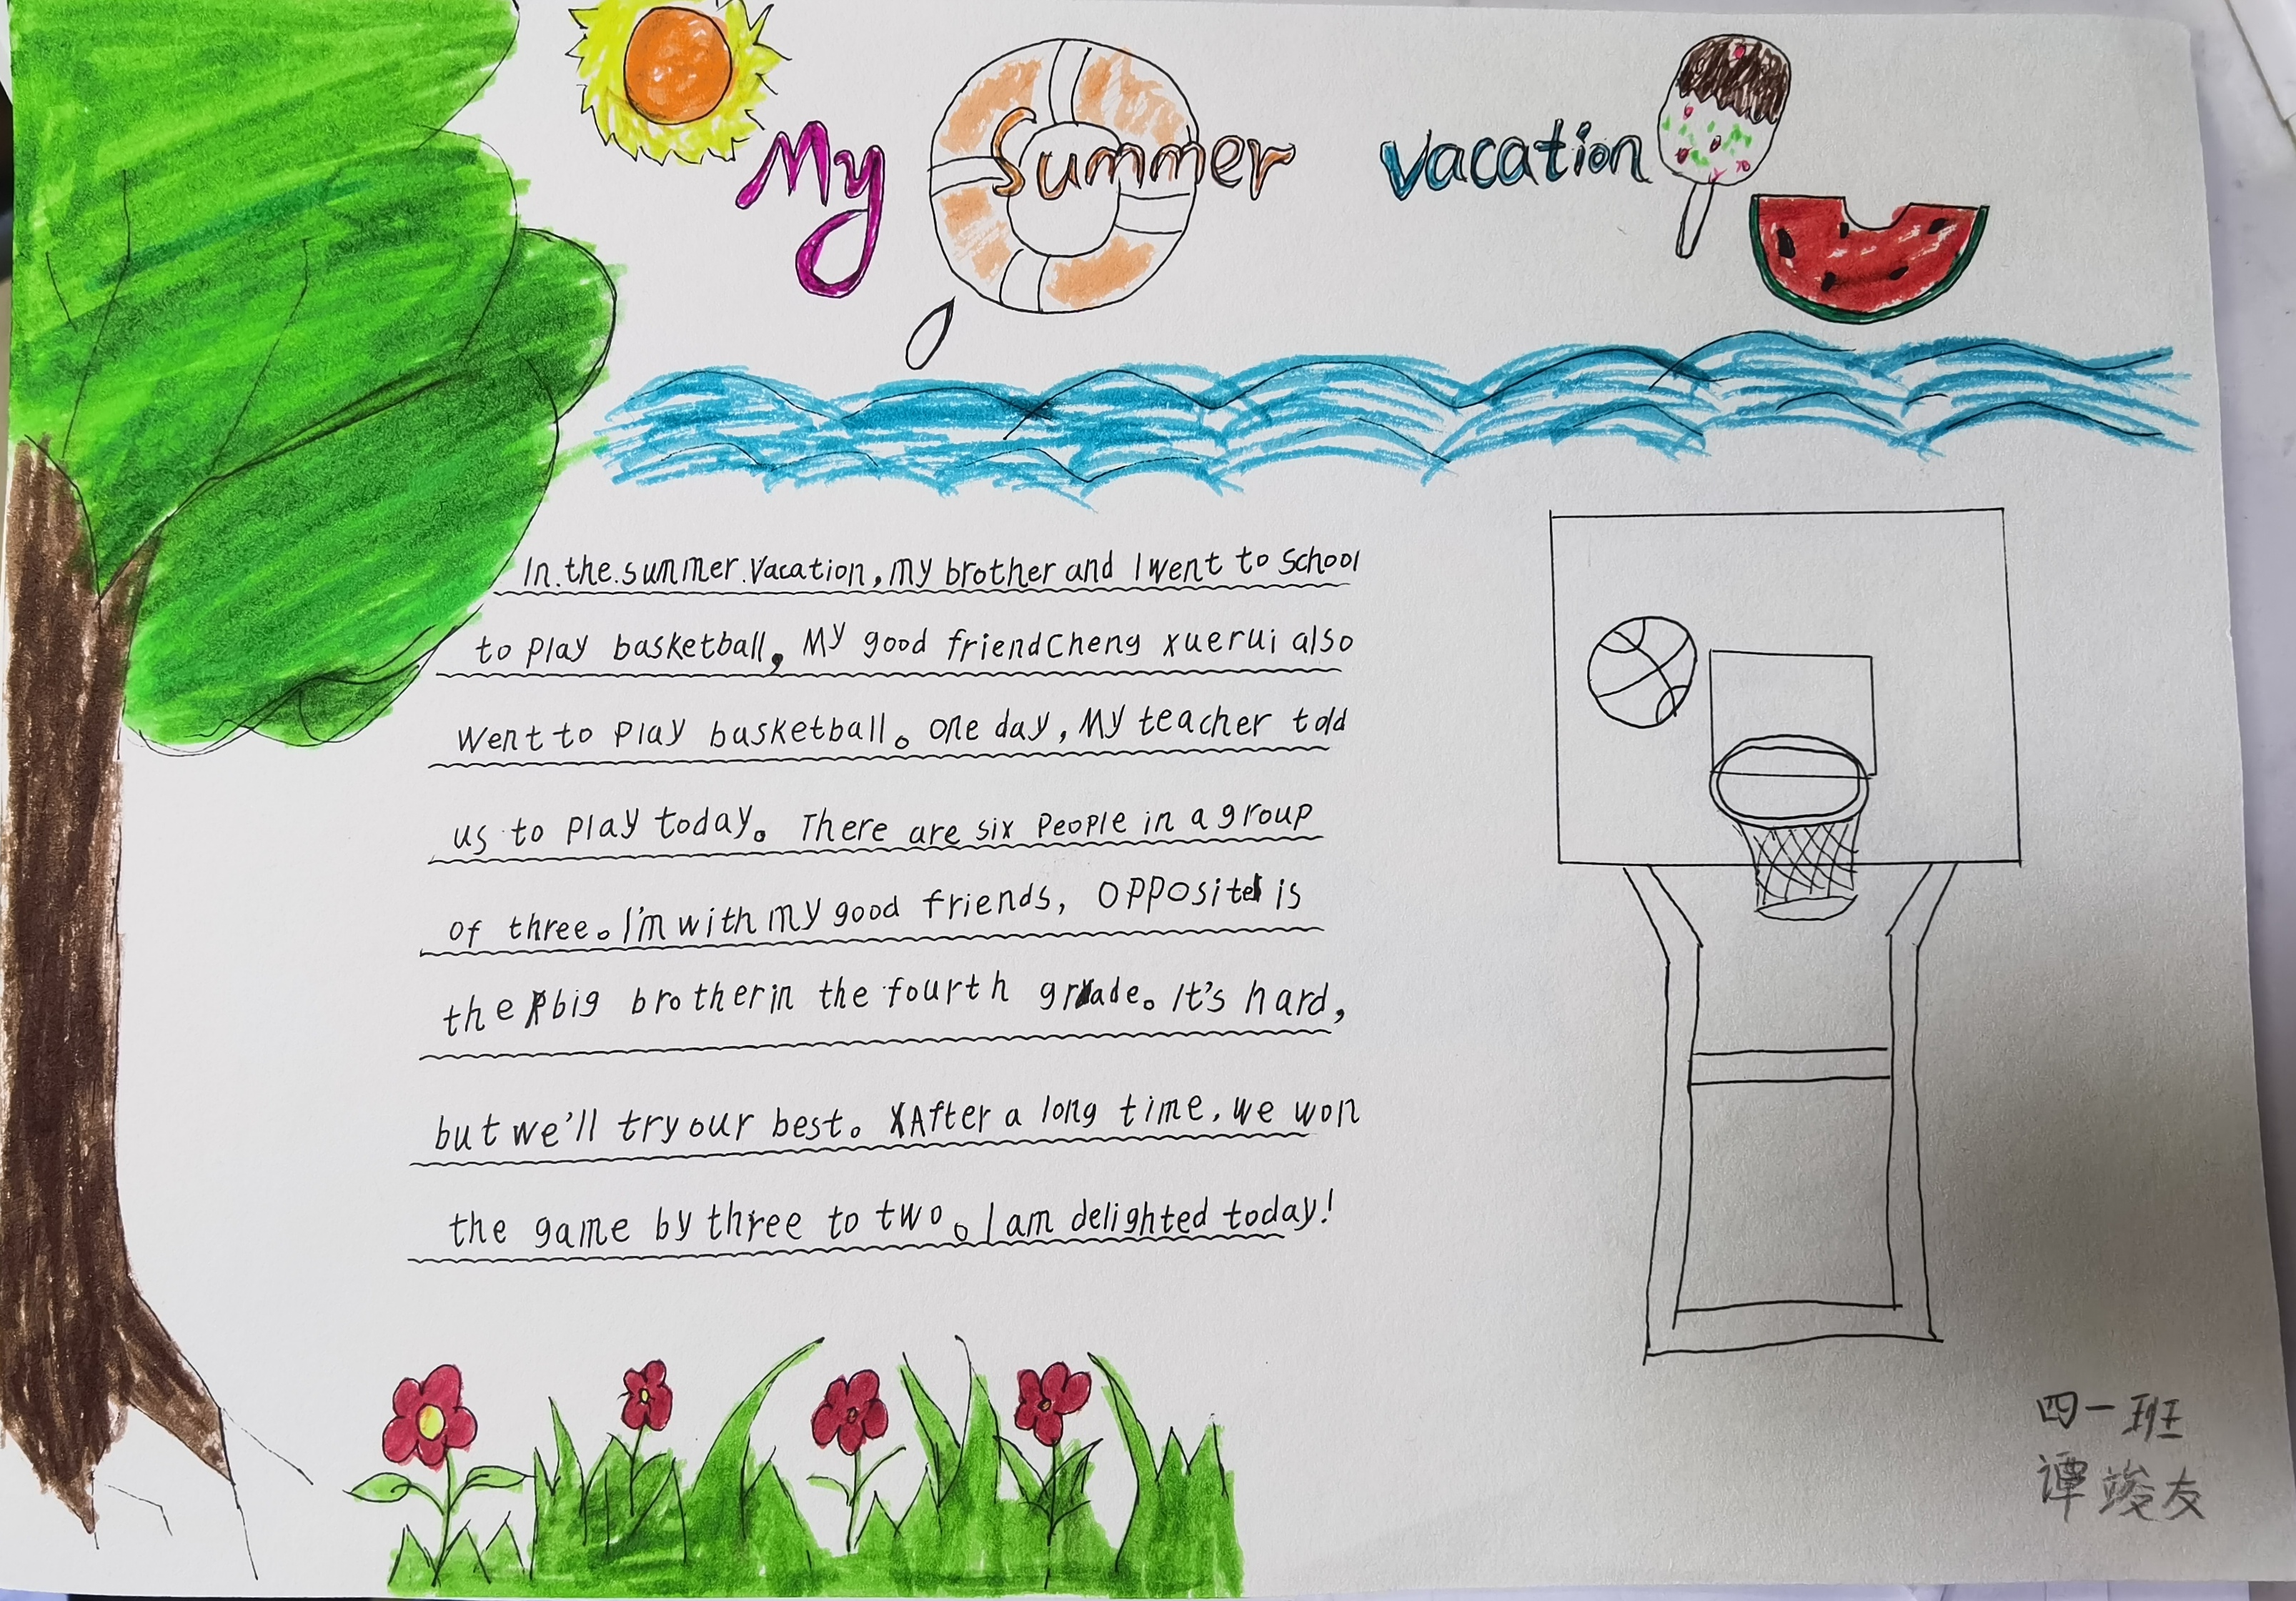 My Summer vacation
In.the.summer.vacation,my brother and I went to school
to play basketball, My good friend Cheng xuerui also
went to play basketball。 One day, My teacher told
us to play today。 There are six people in a group
of three。I'm with my good friends, opposite is
the big brother in the fourth grade。It's hard,
but we'll try our best。 After a long time, we won
the game by three to two。I am delighted today!
四一班
谭竣友